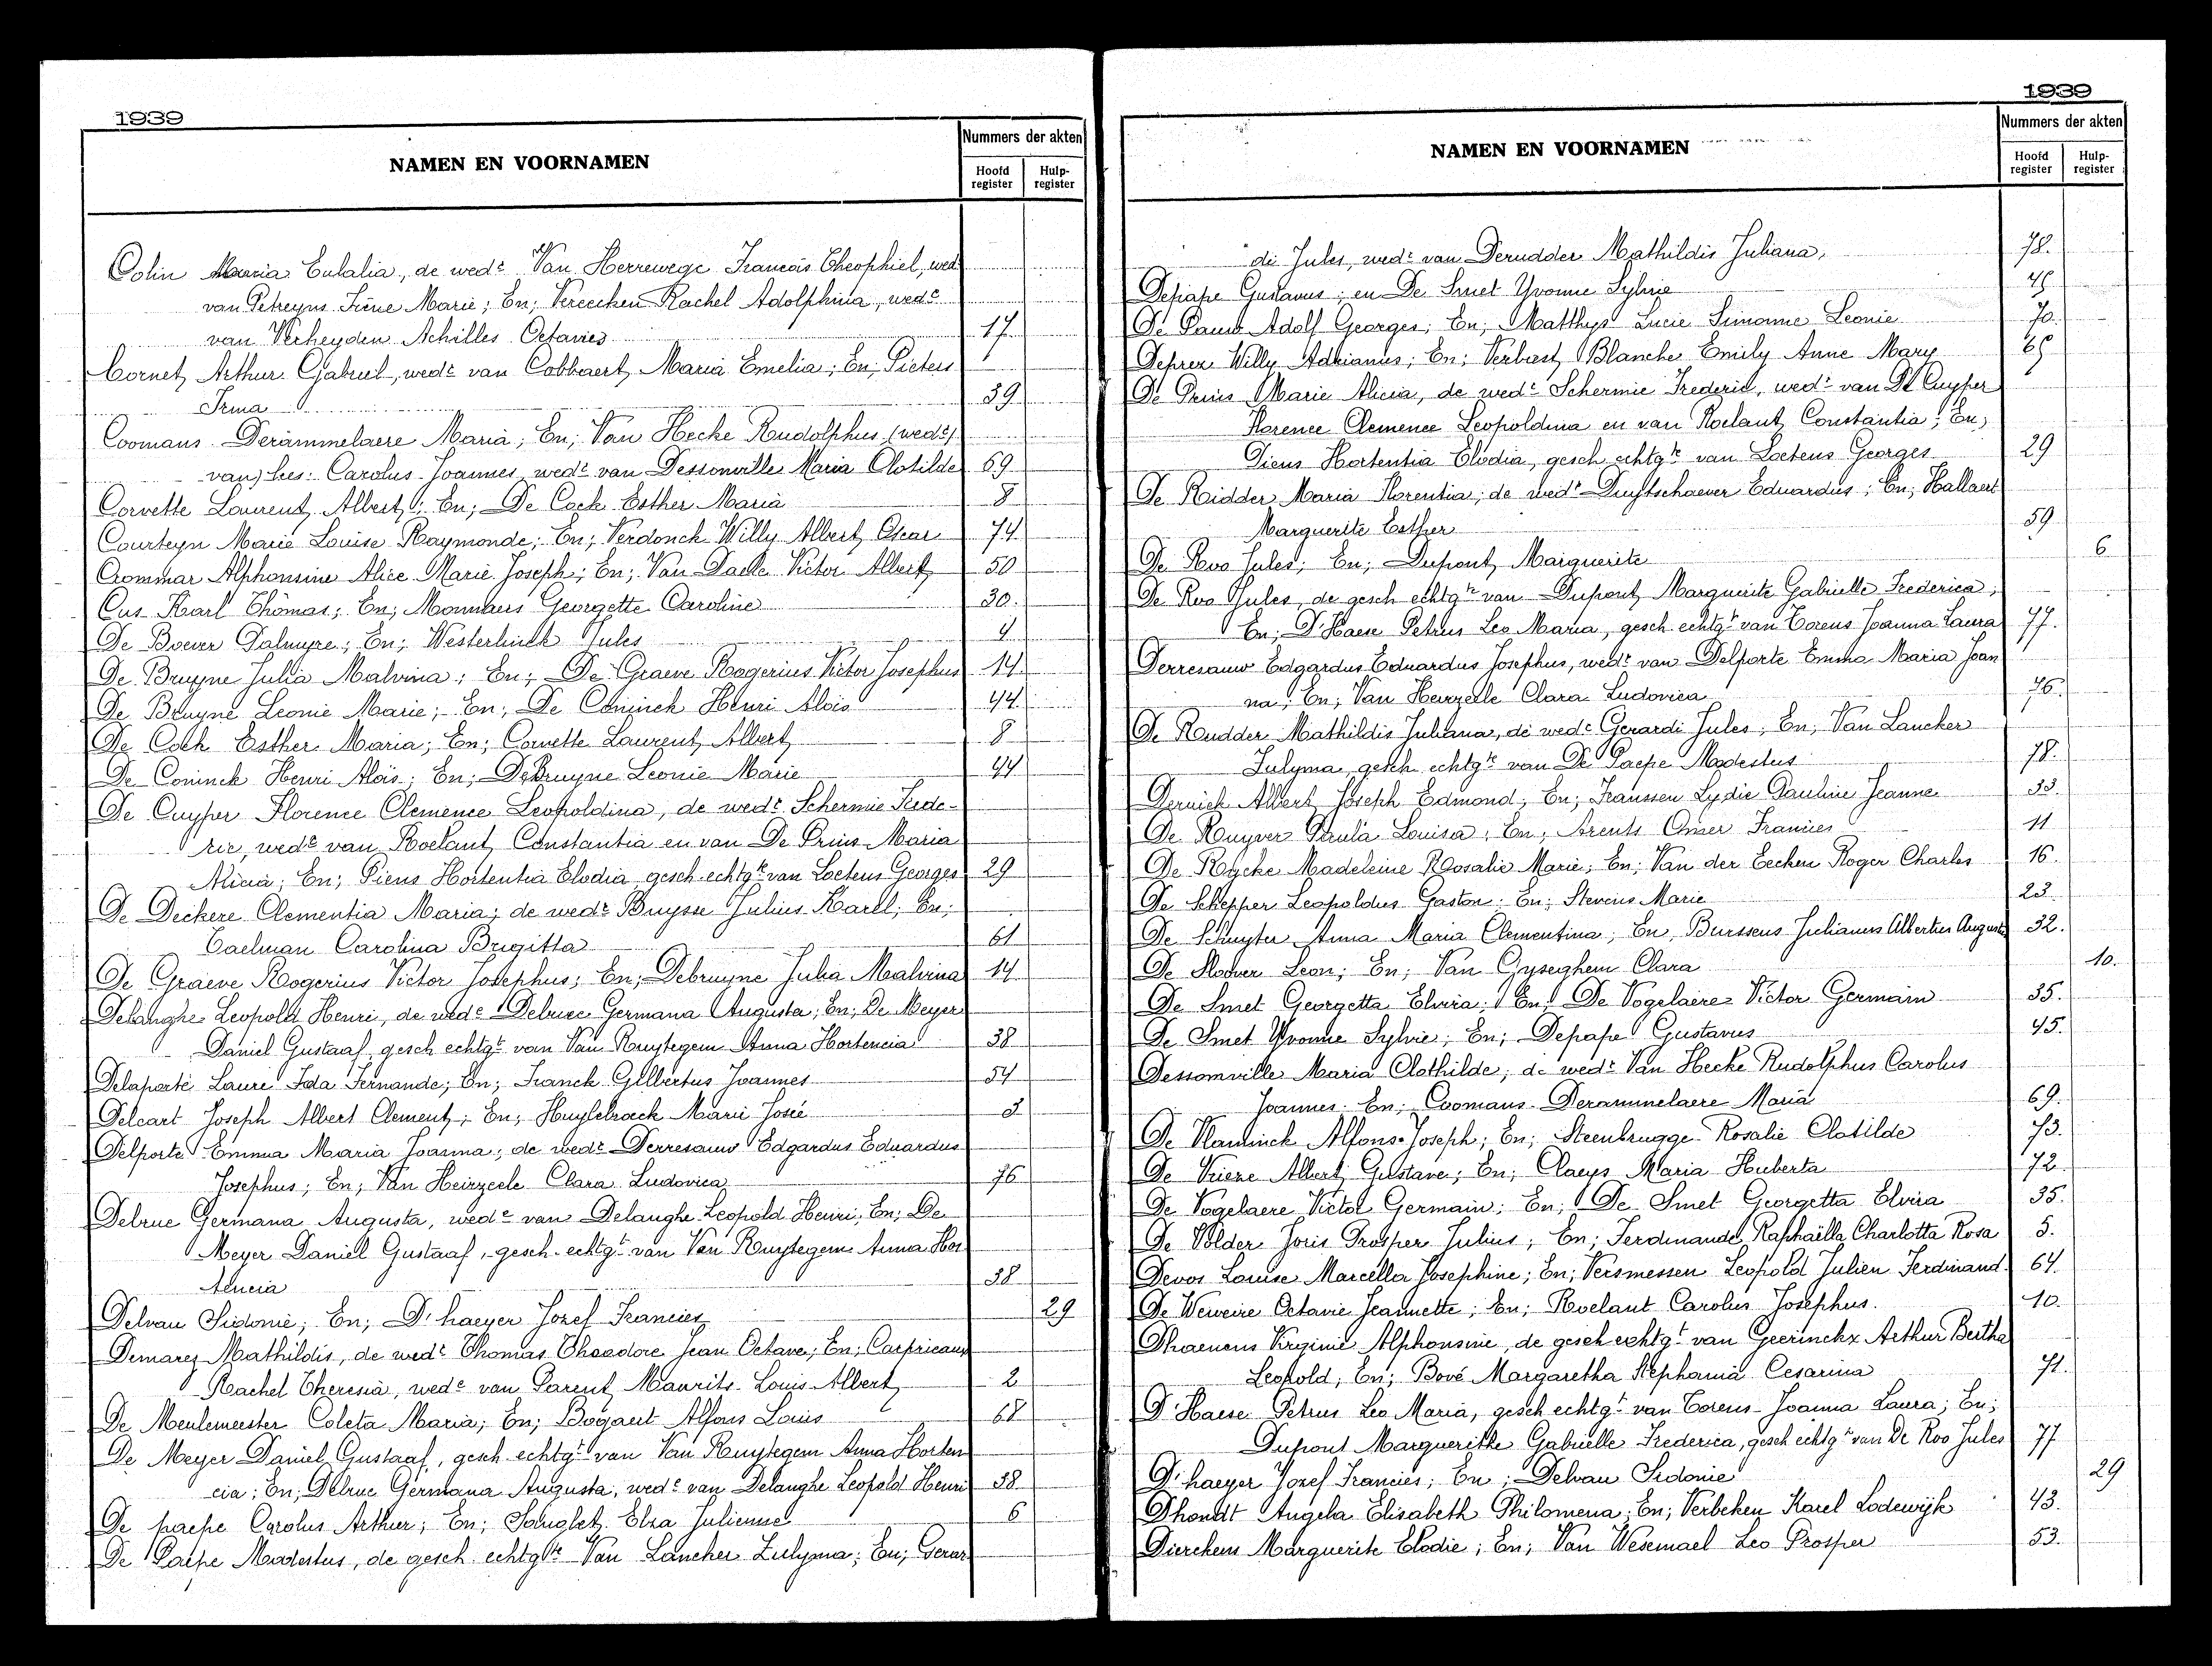 1939
NAMEN EN VOORNAMEN
Nummers der akten
Hoofd register
Hulp-register
Colin Maria Eulalia, de wedᵉ Van Herrewege Francois Theophiel, wed
van Petreyns Irène Marie; En; Vereecken Rachel Adolphina, wedᵉ
van Verheyden Achilles Octavies 17
Cornet Arthur Gabriel, wedᵉ van Cobbaert Maria Emelia; En; Pieters
Irma 39
Coomans-Derammelaere Maria; En; Van Hecke Rudolphus (wedᵉ)
van) lees: Carolus Joannes, wedᵉ van Dessomville Maria Clotilde 69
Corvette Laurent Albert; En; De Cock Esther Maria 8
Courteyn Marie Louise Raymonde; En; Verdonck Willy Albert Oscar 74
Crommar Alphonsine Alice Marie Joseph; En; Van Daele Victor Albert 50
Cus Karl Thomas; En; Monnaers Georgette Caroline 30.
De Boever Palmyre; En; Westerlinck Jules 4
De Bruyne Julia Malvina; En; De Graeve Rogerius Victor Josephus 14
De Bruyne Leonie Marie; En; De Coninck Henri Aloïs 44
De Cock Esther Maria; En; Corvette Laurent Albert 8
De Coninck Henri Aloïs; En; DeBruyne Leonie Marie 44
De Cuyper Florence Clemence Leopoldina, de wedᵉ Schermie Frede-
ric, wedᵉ van Roelant Constantia en van De Prins Maria
Alicia; En; Piens Hortentia Elodia gesch. echtgᵗᵉ van Loetens Georges 29
De Deckere Clementia Maria; de wedᵉ Buysse Julius Karel; En;
Taelman Carolina Brigitta 61
De Graeve Rogerius Victor Josephus; En; Debruyne Julia Malvina 14
Delanghe Leopold Henri, de wedᵉ Delrue Germana Augusta; En; De Meyer
Daniel Gustaaf, gesch echtgᵗ van Van Ruytegem Anna Hortencia 38
Delaporte Laure Ida Fernande; En; Franck Gilbertus Joannes 54
Delcart Joseph Albert Clement; En; Huylebroeck Marie Josée 3
Delporte Emma Maria Joanna; de wedᵉ Derresauw Edgardus Eduardus
Josephus; En; Van Heirzeele Clara Ludovica 76
Delrue Germana Augusta, wedᵉ van Delanghe Leopold Henri; En; De
Meyer Daniel Gustaaf, gesch. echtgᵗ van Van Ruytegem Anna Hor
tencia 38
Delvau Sidonie; En; D'haeyer Jozef Francies 29
Demarez Mathildis, de wedᵉ Thomas Theodore Jean Octave; En; Carpricaux
Rachel Theresia, wedᵉ van Parent Maurits Louis Albert 2
De Meulemeester Coleta Maria; En; Bogaert Alfons Louis 68
De Meyer Daniel Gustaaf, gesch echtgᵗ van Van Ruytegem Anna Horten
cia; En; Delrue Germana Augusta, wedᵉ van Delanghe Leopold Henri 38
De paepe Carolus Arthur; En; Elza Julienne 6
De Paepe Modestus, de gesch echtgᵗᵉ Van Lancker Zulyma; En; Gerar
1939
NAMEN EN VOORNAMEN
Nummers der akten
Hoofd register
Hulp-register
di Jules, wedᵉ van Derudder Mathildis Juliana, 78.
Depape Gustavus; en De Smet Yvonne Sylvie 45
De Pauw Adolf Georges; En; Matthys Lucie Simonne Leonie 70.
Deprez Willy Adrianus; En; Verbiest Blanche Emily Anne Mary 65
De Prins Marie Alicia, de wedᵉ Schermie Frederic, wedᵉ van De Cuyper
Florence Clemence Leopoldina en van Roelant Constantia; En;
Piens Hortentia Elodia, gesch echtgᵗᵉ van Loetens Georges 29
De Ridder Maria Florentia; de wedᵉ Duytschaever Eduardus; En; Hallaert
Marguerite Esther 59
De Roo Jules; En; Dupont Marguerite 6
De Roo Jules, de gesch echtgᵗᵉ van Dupont Marguerite Gabrielle Frederica;
En; D'Haese Petrus Leo Maria, gesch echtgᵗ van Torens Joanna Laura 77.
Derresauw Edgardus Eduardus Josephus, wedᵉ van Delporte Emma Maria Joan
na; En; Van Heirzeele Clara Ludovica 76.
De Rudder Mathildis Juliana, de wedᵉ Gerardi Jules; En; Van Lancker
Zulyma, gesch echtgᵗᵉ van De Paepe Modestus 78.
Deruick Albert Joseph Edmond; En; Franssen Lydie Pauline Jeanne 33.
De Ruyver Paula Louisa; En; Arents Omer Francies 11
De Rycke Madeleine Rosalie Marie; En; Van der Eecken Roger Charles 16.
De Schepper Leopoldus Gaston; En; Stevens Marie 23
De Schuyter Anna Maria Clementina; En; Burssens Julianus Albertus August 32.
De Sloover Leon; En; Van Gyseghem Clara 10.
De Smet Georgetta Elvira; En; De Vogelaere Victor Germain 35.
De Smet Yvonne Sylvie; En; Depape Gustavus 45.
Dessomville Maria Clothilde; de wedᵉ Van Hecke Rudolphus Carolus
Joannes. En; Coomans-Derammelaere Maria 69.
De Vlaminck Alfons-Joseph; En; Steenbrugge Rosalie Clotilde 73.
De Vrieze Albert Gustave; En; Claeys Maria Huberta 72
De Vogelaere Victor Germain; En; De Smet Georgetta Elvira 35.
De Volder Joris Prosper Julius; En; Ferdinande Raphaëlla Charlotta Rosa 5.
Devos Louise Marcella Josephine; En; Versmessen Leopold Julien Ferdinand. 64.
De Weweire Octavie Jeannette; En; Roelant Carolus Josephus. 10.
Dhaenens Virginie Alphonsine, de gesch echtgᵗ van Geerinckx Arthur Bertha
Leopold; En; Bové Margaretha Stephania Cesarina 71.
D'Haese Petrus Leo Maria, gesch echtgᵗ van Torens Joanna Laura; En;
Dupont Margueritte Gabrielle Frederica, gesch echtgᵗᵉ van De Roo Jules 77
D'haeyer Jozef Francies; En; Delvau Sidonie 29
Dhondt Angela Elisabeth Philomena; En; Verbeken Karel Lodewijk 43.
Dierckens Marguerite Elodie; En; Van Wesemael Leo Prosper 53.